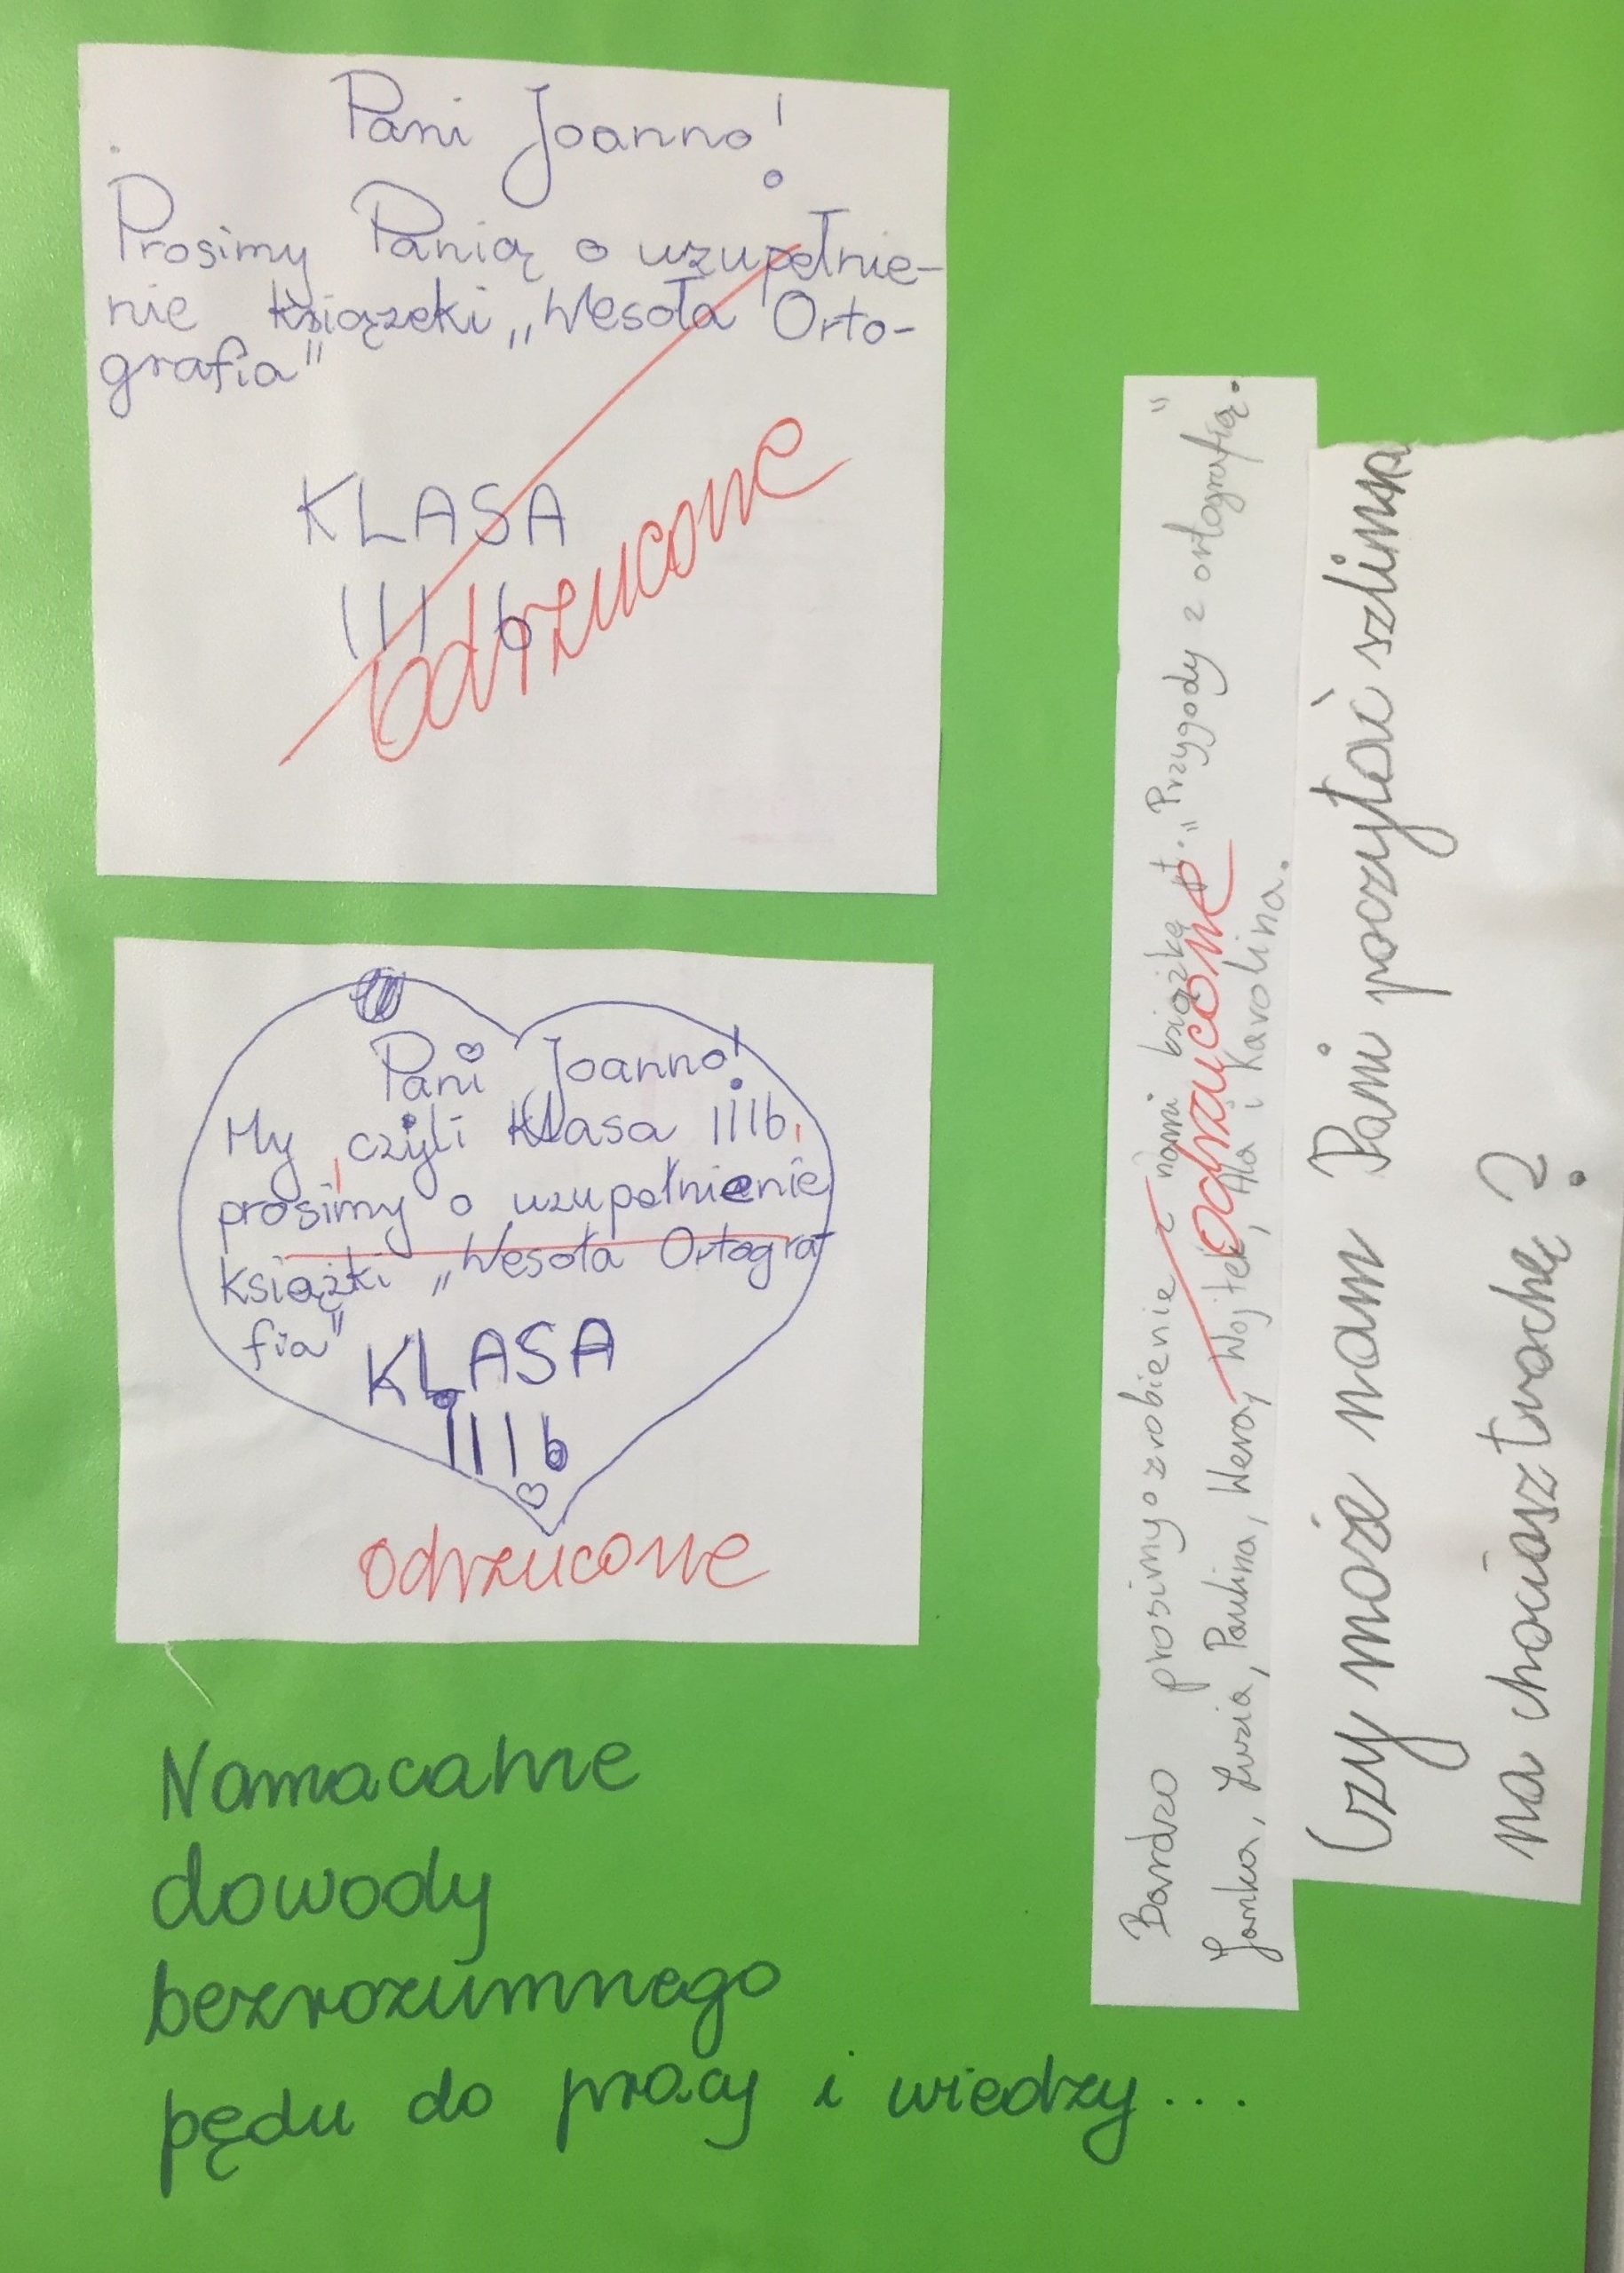 Pani Joanno!
Prosimy Panią o uzupełnie-
nie książeki „Wesoła Orto-
grafia"
KLASA
III b
odrzucone
Pani Joanno!
My, czyli Klasa IIIb,
prosimy o uzupełnienie
książki „Wesoła Ortogra
fia"
KLASA
IIIb
odrzucone
Bardzo prosimy o zrobienie z nami książkę pt. „Przygody z ortografią".
Janka, Zuzia, Paulina, Wera, Wojtek, Ala i Karolina.
odrzucone
Czy może nam Pani poczytać szlimak
na chociasz trochę?
Namacalne
dowody
bezrozumnego
pędu do pracy i wiedzy...